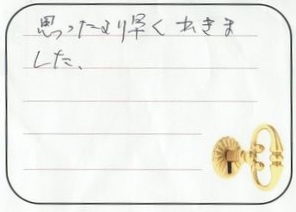 思ったより早くおきま
した、